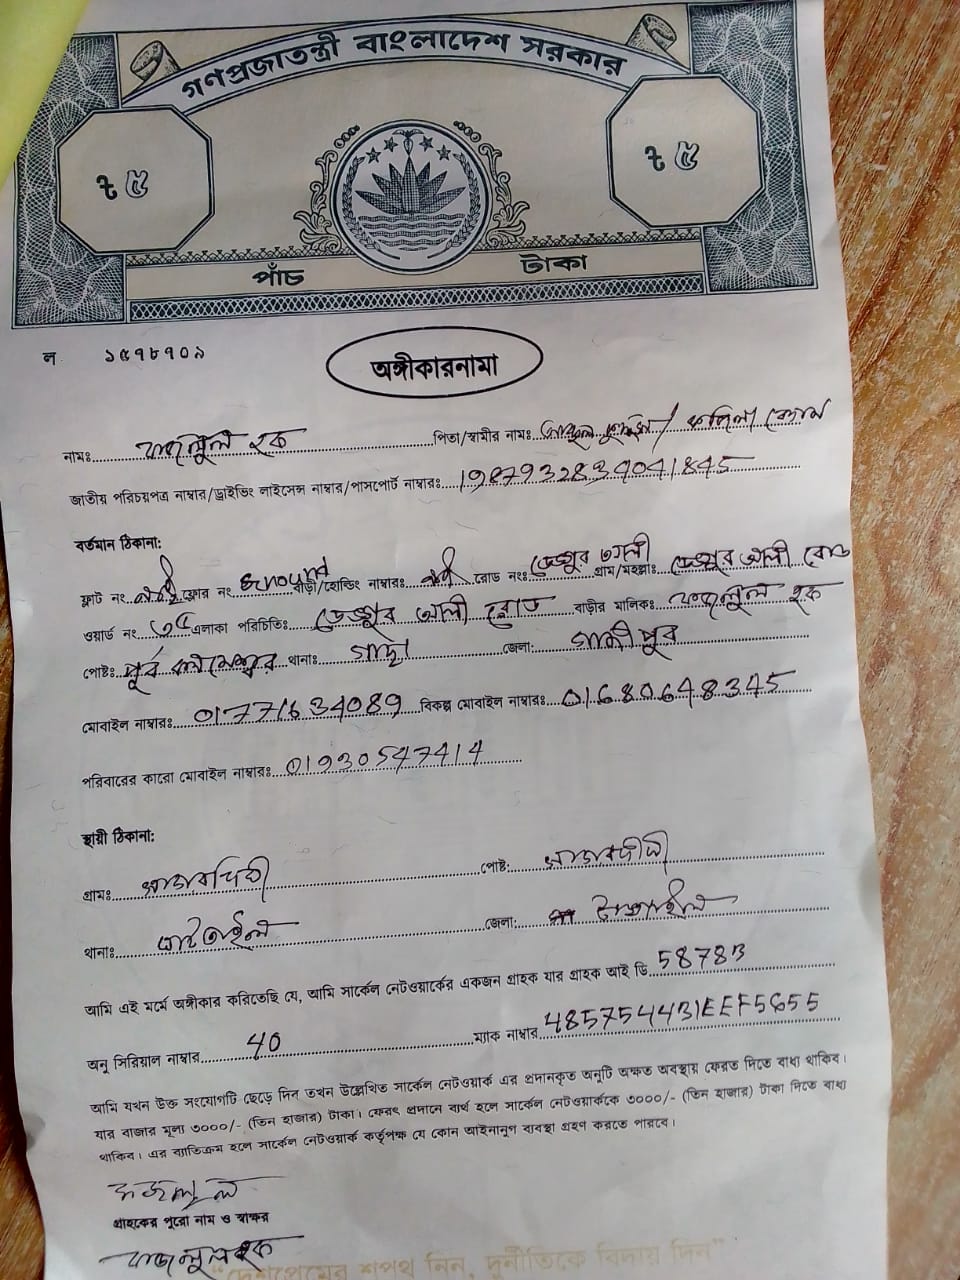 গণপ্রজাতন্ত্রী বাংলাদেশ সরকার
৳ ৫ ৳ ৫
পাঁচ টাকা
ন ১৫৭৮৭০৯
অঙ্গীকারনামা
নামঃ ফজলুল হক পিতা/স্বামীর নামঃ
জাতীয় পরিচয়পত্র নাম্বার/ড্রাইভিং লাইসেন্স নাম্বার/পাসপোর্ট নাম্বারঃ 19879328394041845
বর্তমান ঠিকানা:
ফ্লাট নং ফ্লোর নং বাড়ী/হোল্ডিং নাম্বারঃ রোড নংঃ গ্রাম/মহল্লাঃ
ওয়ার্ড নং ৩৫ এলাকা পরিচিতিঃ আলী রোড বাড়ীর মালিকঃ ফজলুল হক
পোষ্টঃ পূর্ব থানাঃ গাছা জেলা: গাজীপুর
মোবাইল নাম্বারঃ 01771634089 বিকল্প মোবাইল নাম্বারঃ 01680648345
পরিবারের কারো মোবাইল নাম্বারঃ 01930547414
স্থায়ী ঠিকানা:
গ্রামঃ পোষ্ট:
থানাঃ জেলা: টাঙ্গাইল
আমি এই মর্মে অঙ্গীকার করিতেছি যে, আমি সার্কেল নেটওয়ার্কের একজন গ্রাহক যার গ্রাহক আই ডি 5878B
অনু সিরিয়াল নাম্বার 40 ম্যাক নাম্বার 485754431EEF5655
আমি যখন উক্ত সংযোগটি ছেড়ে দিব তখন উল্লেখিত সার্কেল নেটওয়ার্ক এর প্রদানকৃত অনুটি অক্ষত অবস্থায় ফেরত দিতে বাধ্য থাকিব।
যার বাজার মূল্য ৩০০০/- (তিন হাজার) টাকা। ফেরৎ প্রদানে ব্যর্থ হলে সার্কেল নেটওয়ার্ককে ৩০০০/- (তিন হাজার) টাকা দিতে বাধ্য
থাকিব। এর ব্যাতিক্রম হলে সার্কেল নেটওয়ার্ক কর্তৃপক্ষ যে কোন আইনানুগ ব্যবস্থা গ্রহণ করতে পারবে।
ফজলুল
গ্রাহকের পুরো নাম ও স্বাক্ষর
ফজলুল হক
"দেশপ্রেমের শপথ নিন, দুর্নীতিকে বিদায় দিন"